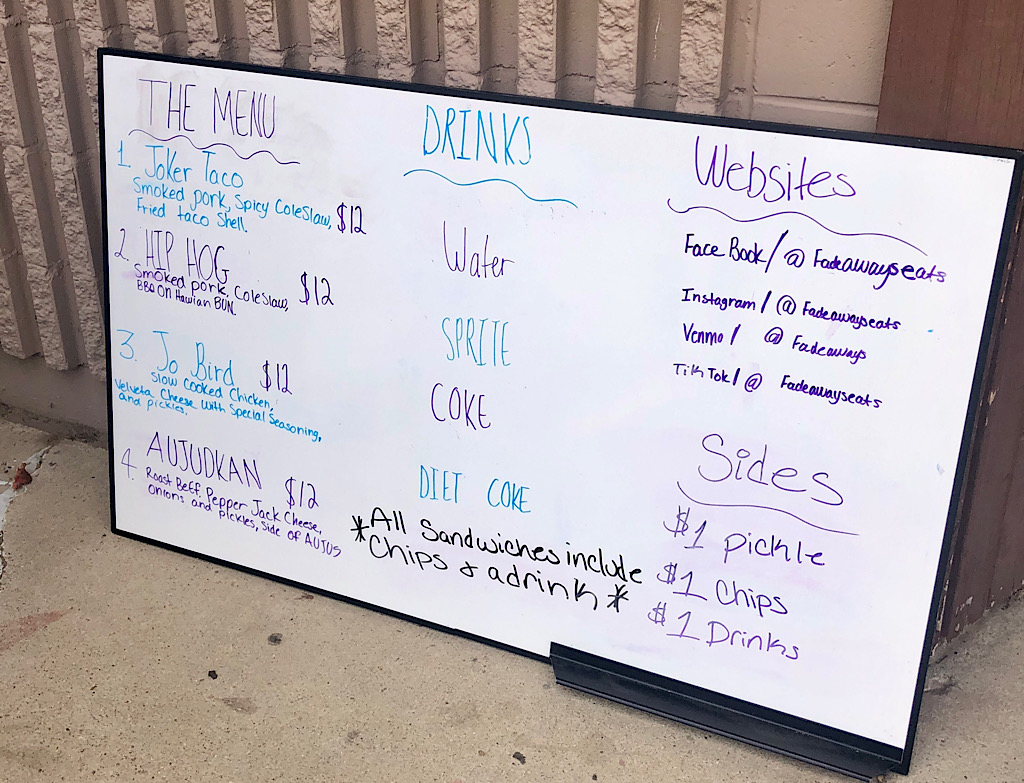 THE MENU
1. Joker Taco
Smoked pork, Spicy ColeSlaw, $12
Fried taco Shell.
2. HIP HOG
Smoked pork, ColeSlaw, $12
BBQ ON Hawian BUN.
3. Jo Bird $12
Slow Cooked Chicken,
Velveta Cheese with Special Seasoning,
and pickles.
4. AUJUDKAN $12
Roast Beef, Pepper Jack Cheese,
onions and pickles, Side of AUJUS
DRINKS
Water
SPRITE
COKE
DIET COKE
*All Sandwiches include
Chips & a drink*
Websites
Face Book/@ Fadeawayseats
Instagram/@ Fadeawayseats
Venmo/ @ Fadeaways
TikTok/@ Fadeawayseats
Sides
$1 pickle
$1 Chips
$1 Drinks